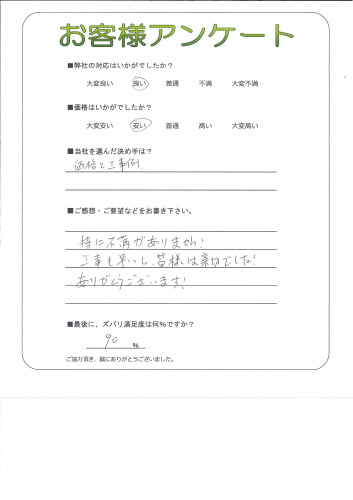 お客様アンケート
■弊社の対応はいかがでしたか?
大変良い 良い 普通 不満 大変不満
■価格はいかがでしたか?
大変安い 安い 普通 高い 大変高い
■当社を選んだ決め手は?
価格と工事例.
■ご感想・ご要望などをお書き下さい。
特に不満がありません!
工事も早いし、皆様は親切でした!
ありがとうございます!
■最後に、ズバリ満足度は何%ですか?
90 %
ご協力頂き、誠にありがとうございました。